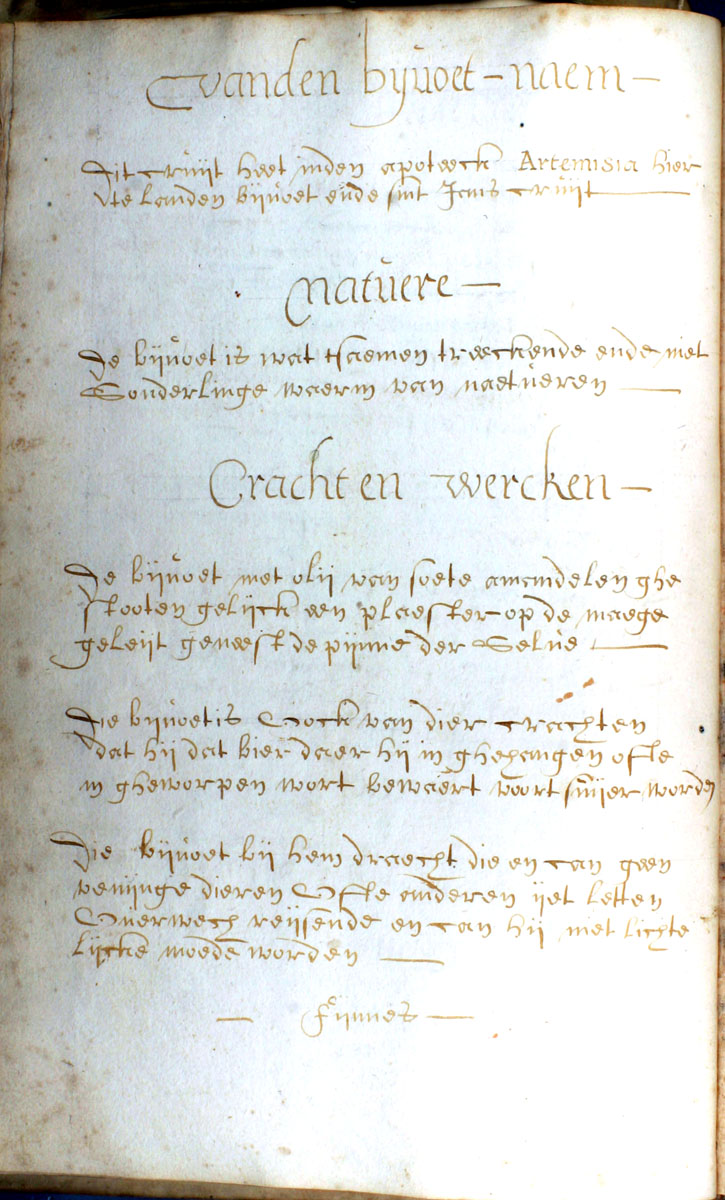 vanden bijvoet - naem -
Dit cruijt heet inden apoteeck Artemisia hier
te landen bijvoet ende sint Jans cruijt
Natuere -
De bijvoet is wat tsaemen treeckende ende niet
Sonderlinge waerm van naetueren
Cracht en wercken -
De bijvoet met olij van soete amandelen ghe
stooten gelijck een plaester op de maege
geleijt geneest de pijnne der Selve
Die bijvoet is Oock van dier crachten
dat hij dat bier daer hij in ghehangen ofte
in gheworpen wort bewaert voort suijer worden
Die bijvoet bij hem draecht die en can geen
venijnge dieren Ofte anderen ijet letten
Overwech reijsende en can hij niet lichte
lijcke moede worden
- Fijnnes -